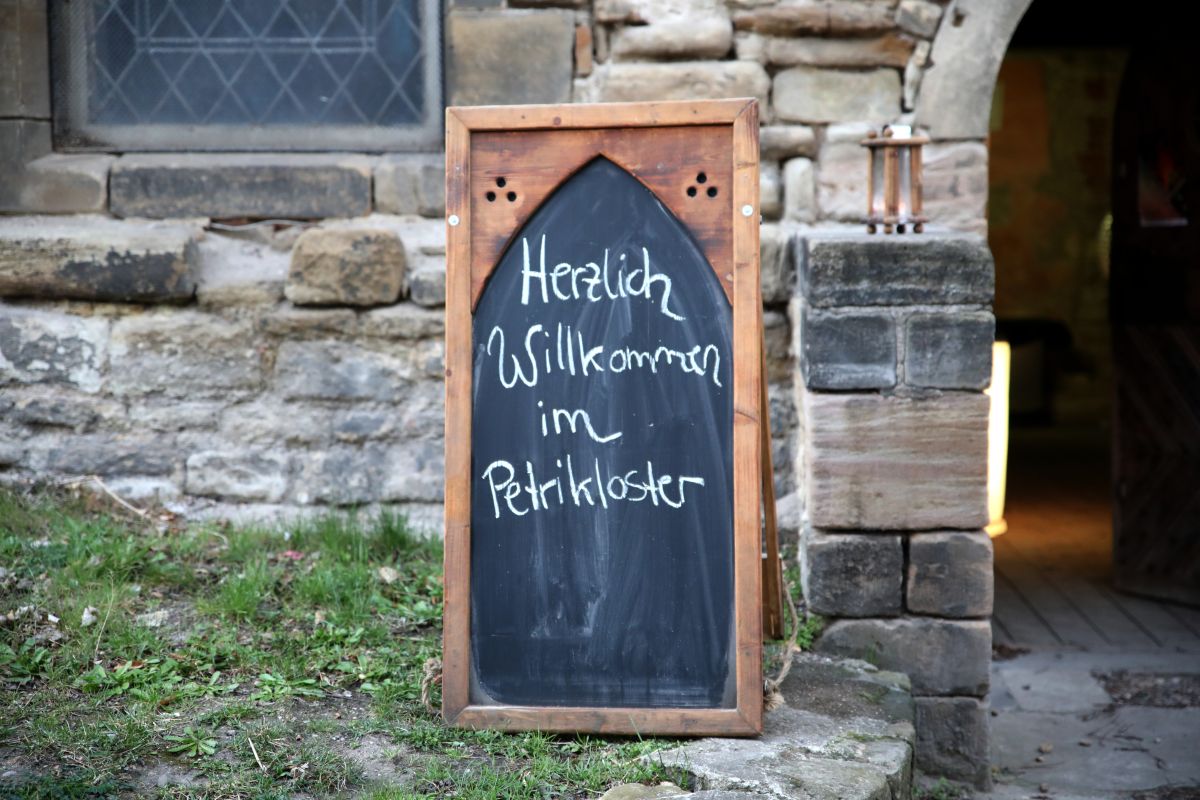 Herzlich
Willkommen
im
Petrikloster